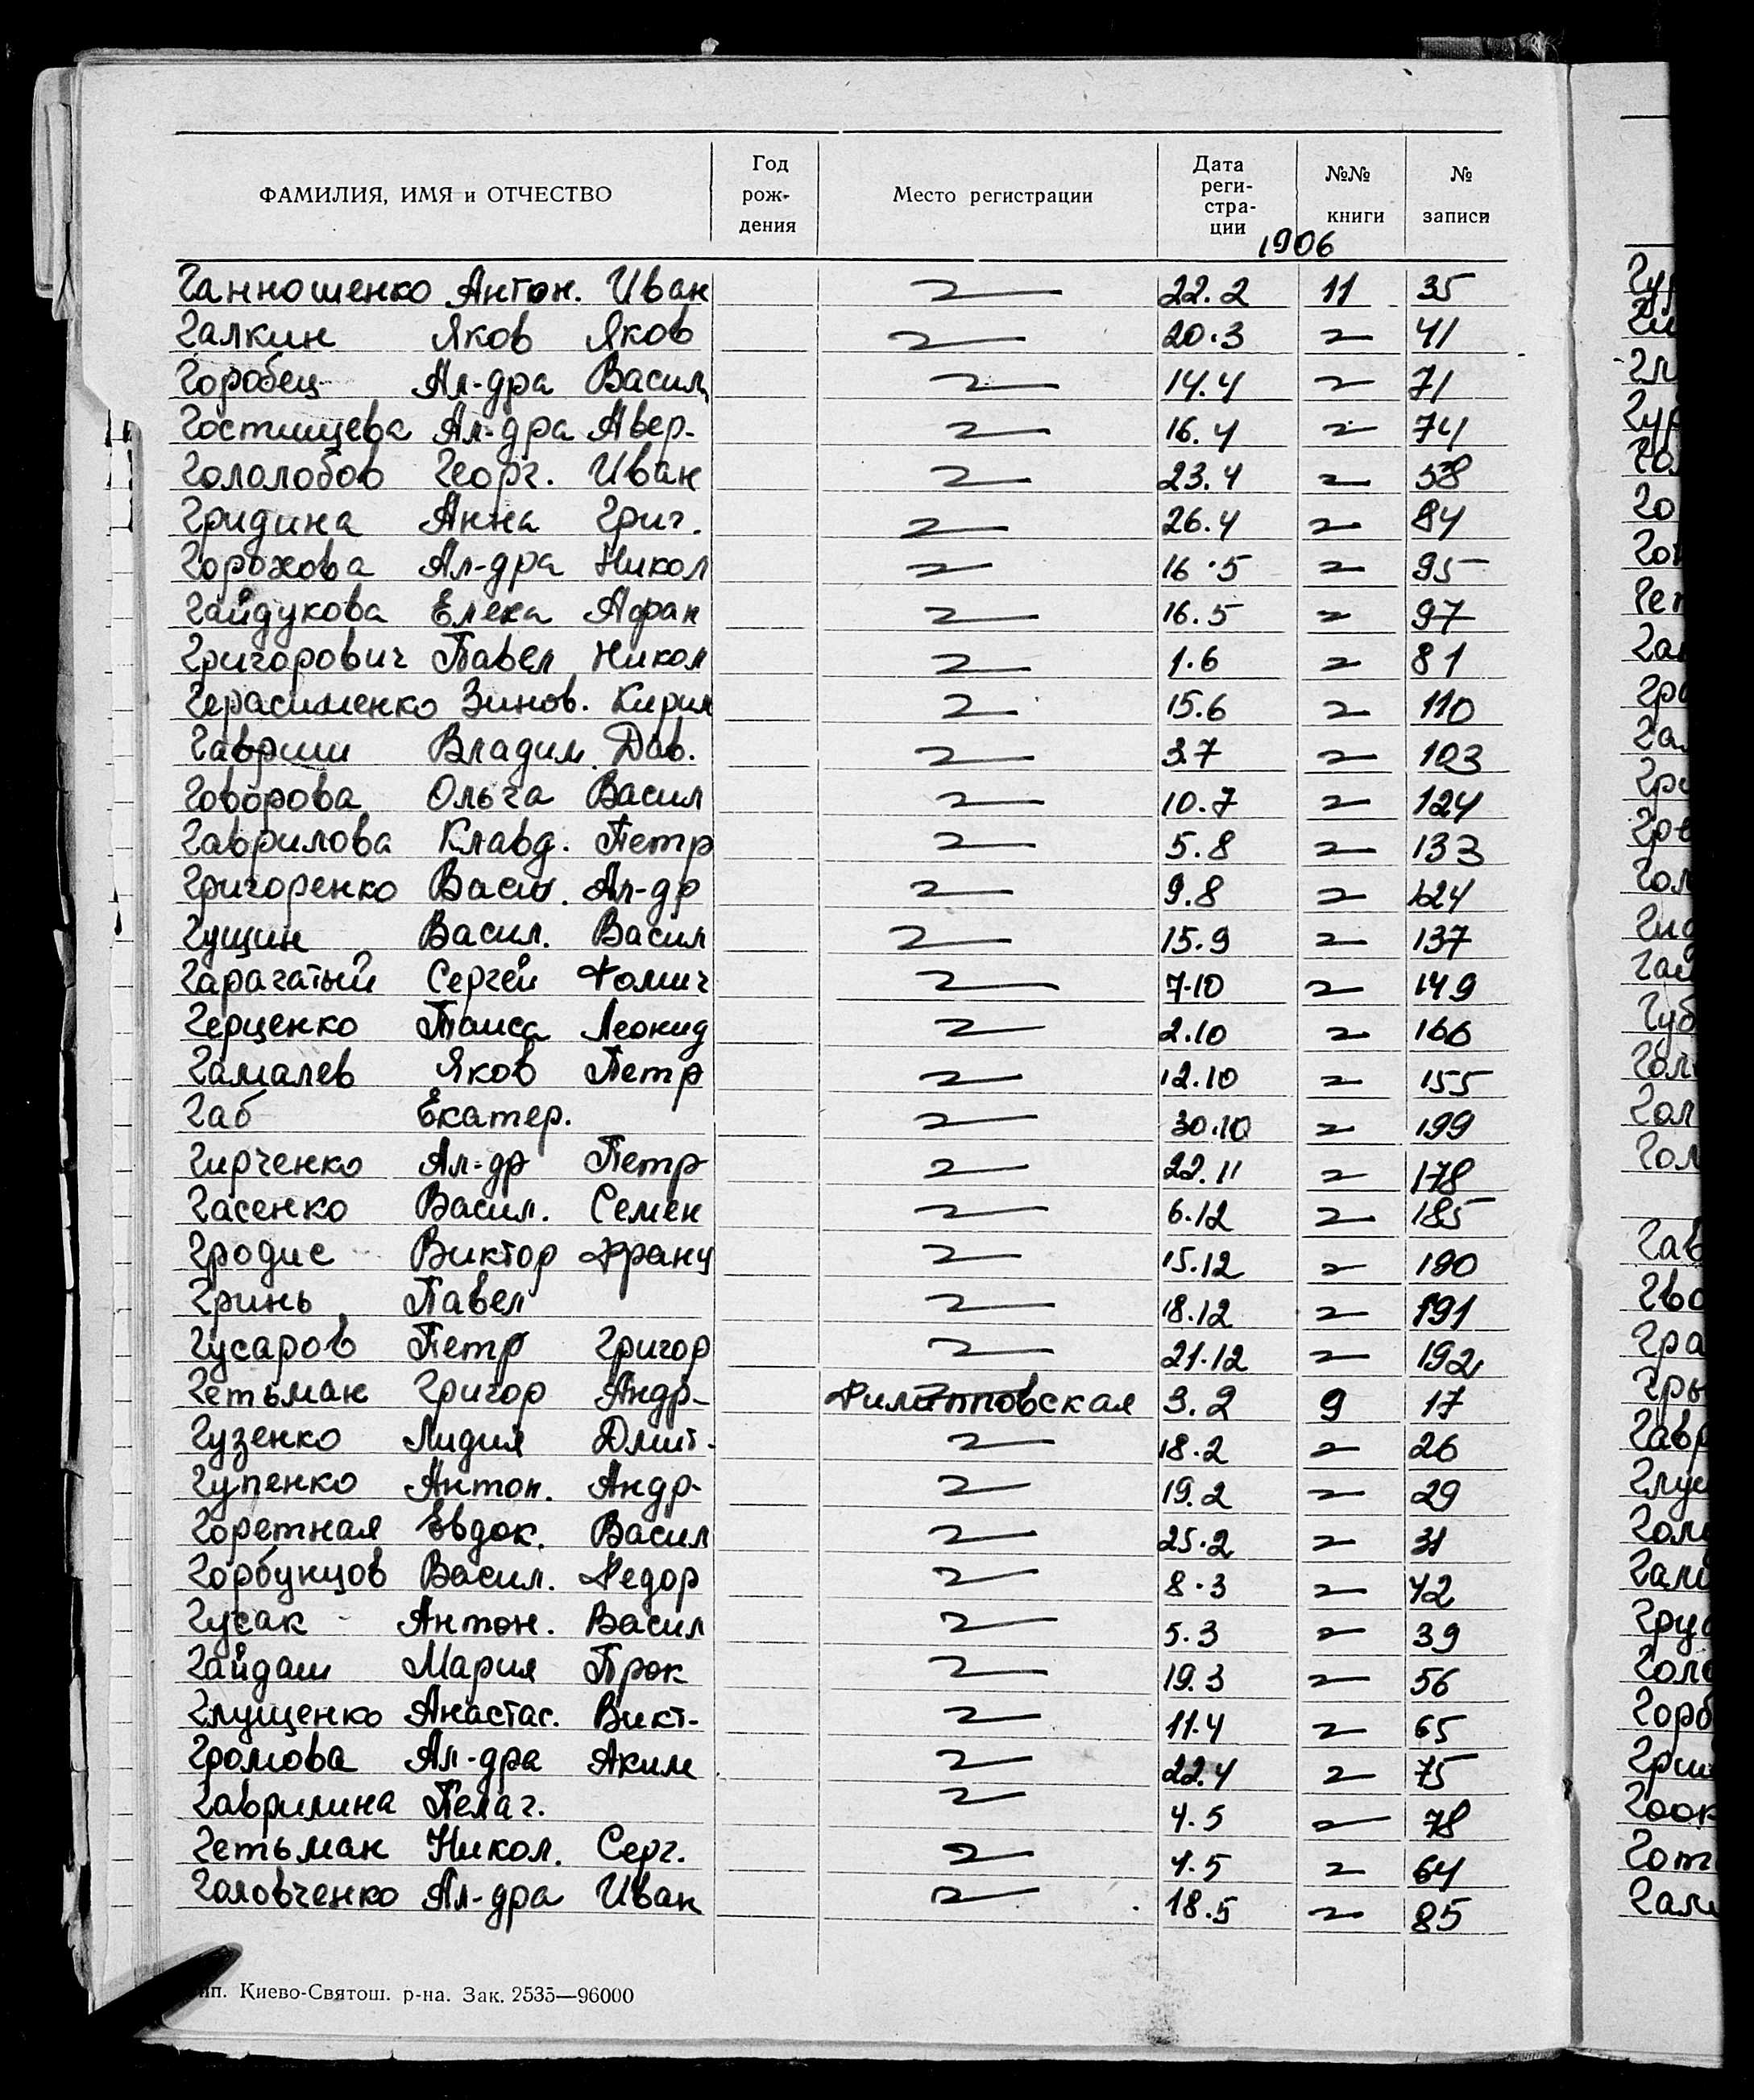 ФАМИЛИЯ, ИМЯ и ОТЧЕСТВО Год рож- дения Место регистрации Дата реги- стра- ции №№ книги № записи
1906
Ганношенко Антон. Иван 22.2 11 35
Галкин Яков Яков 20.3 41
Горобец Ал-дра Васил 14.4 71
Гостищева Ал-дра Авер. 16.4 74
Гололобов Георг. Иван 23.4 58
Гридина Анна Григ. 26.4 84
Горохова Ал-дра Никол 16.5 95
Гайдукова Елена Афан 16.5 97
Григорович Павел Никол 1.6 81
Герасименко Зинов. Кирил 15.6 110
Гавриш Владим. Дав. 3.7 103
Говорова Ольга Васил 10.7 124
Гаврилова Клавд. Петр 5.8 133
Григоренко Васил. Ал-др 9.8 124
Гущин Васил. Васил 15.9 137
Гарагатый Сергей Фомич 7.10 149
Герценко Таиса Леонид 2.10 166
Гамалев Яков Петр 12.10 155
Габ Екатер. 30.10 199
Гирченко Ал-др Петр 22.11 178
Гасенко Васил. Семен 6.12 185
Гродис Виктор Франц 15.12 190
Гринь Павел 18.12 191
Гусаров Петр Григор 21.12 192
Гетьман Григор Андр- Филипповская 3.2 9 17
Гузенко Лидия Дмит. 18.2 26
Гупенко Антон. Андр- 19.2 29
Горетная Евдок. Васил 25.2 31
Горбунцов Васил. Федор 8.3 42
Гусак Антон. Васил 5.3 39
Гайдаш Мария Прок 19.3 56
Глущенко Анастас. Викт- 11.4 65
Громова Ал-дра Аким 22.4 75
Гаврилина Пелаг. 4.5 78
Гетьман Никол. Серг. 4.5 64
Головченко Ал-дра Иван 18.5 85
Киево-Святош. р-на. Зак. 2535—96000